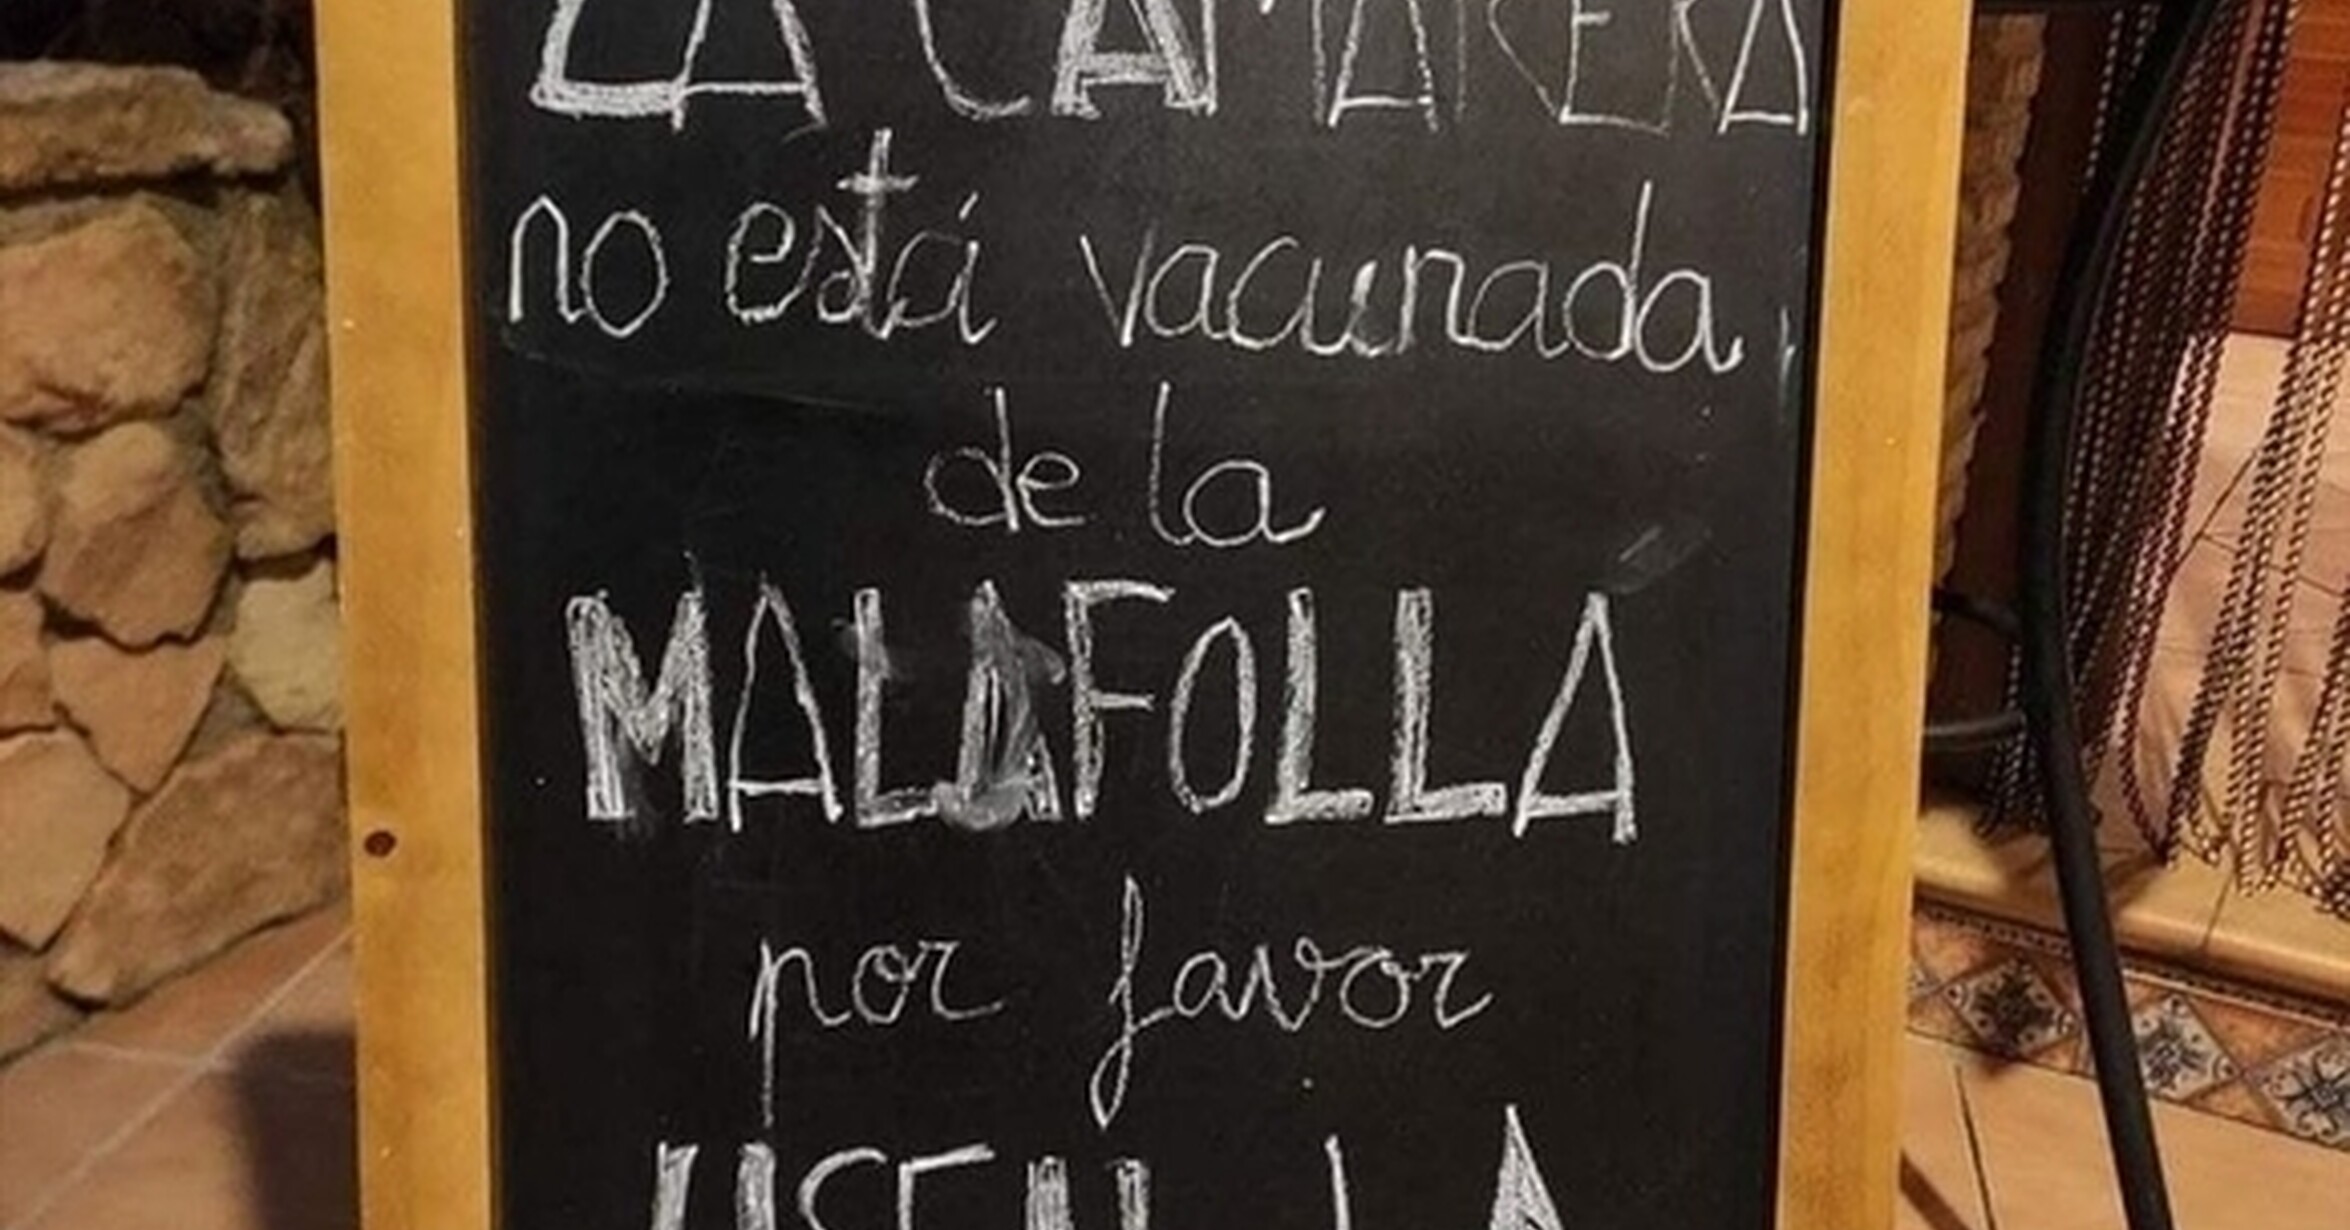 LA CAMARERA
no está vacunada,
de la
MALAFOLLÁ
por favor
USEN LA